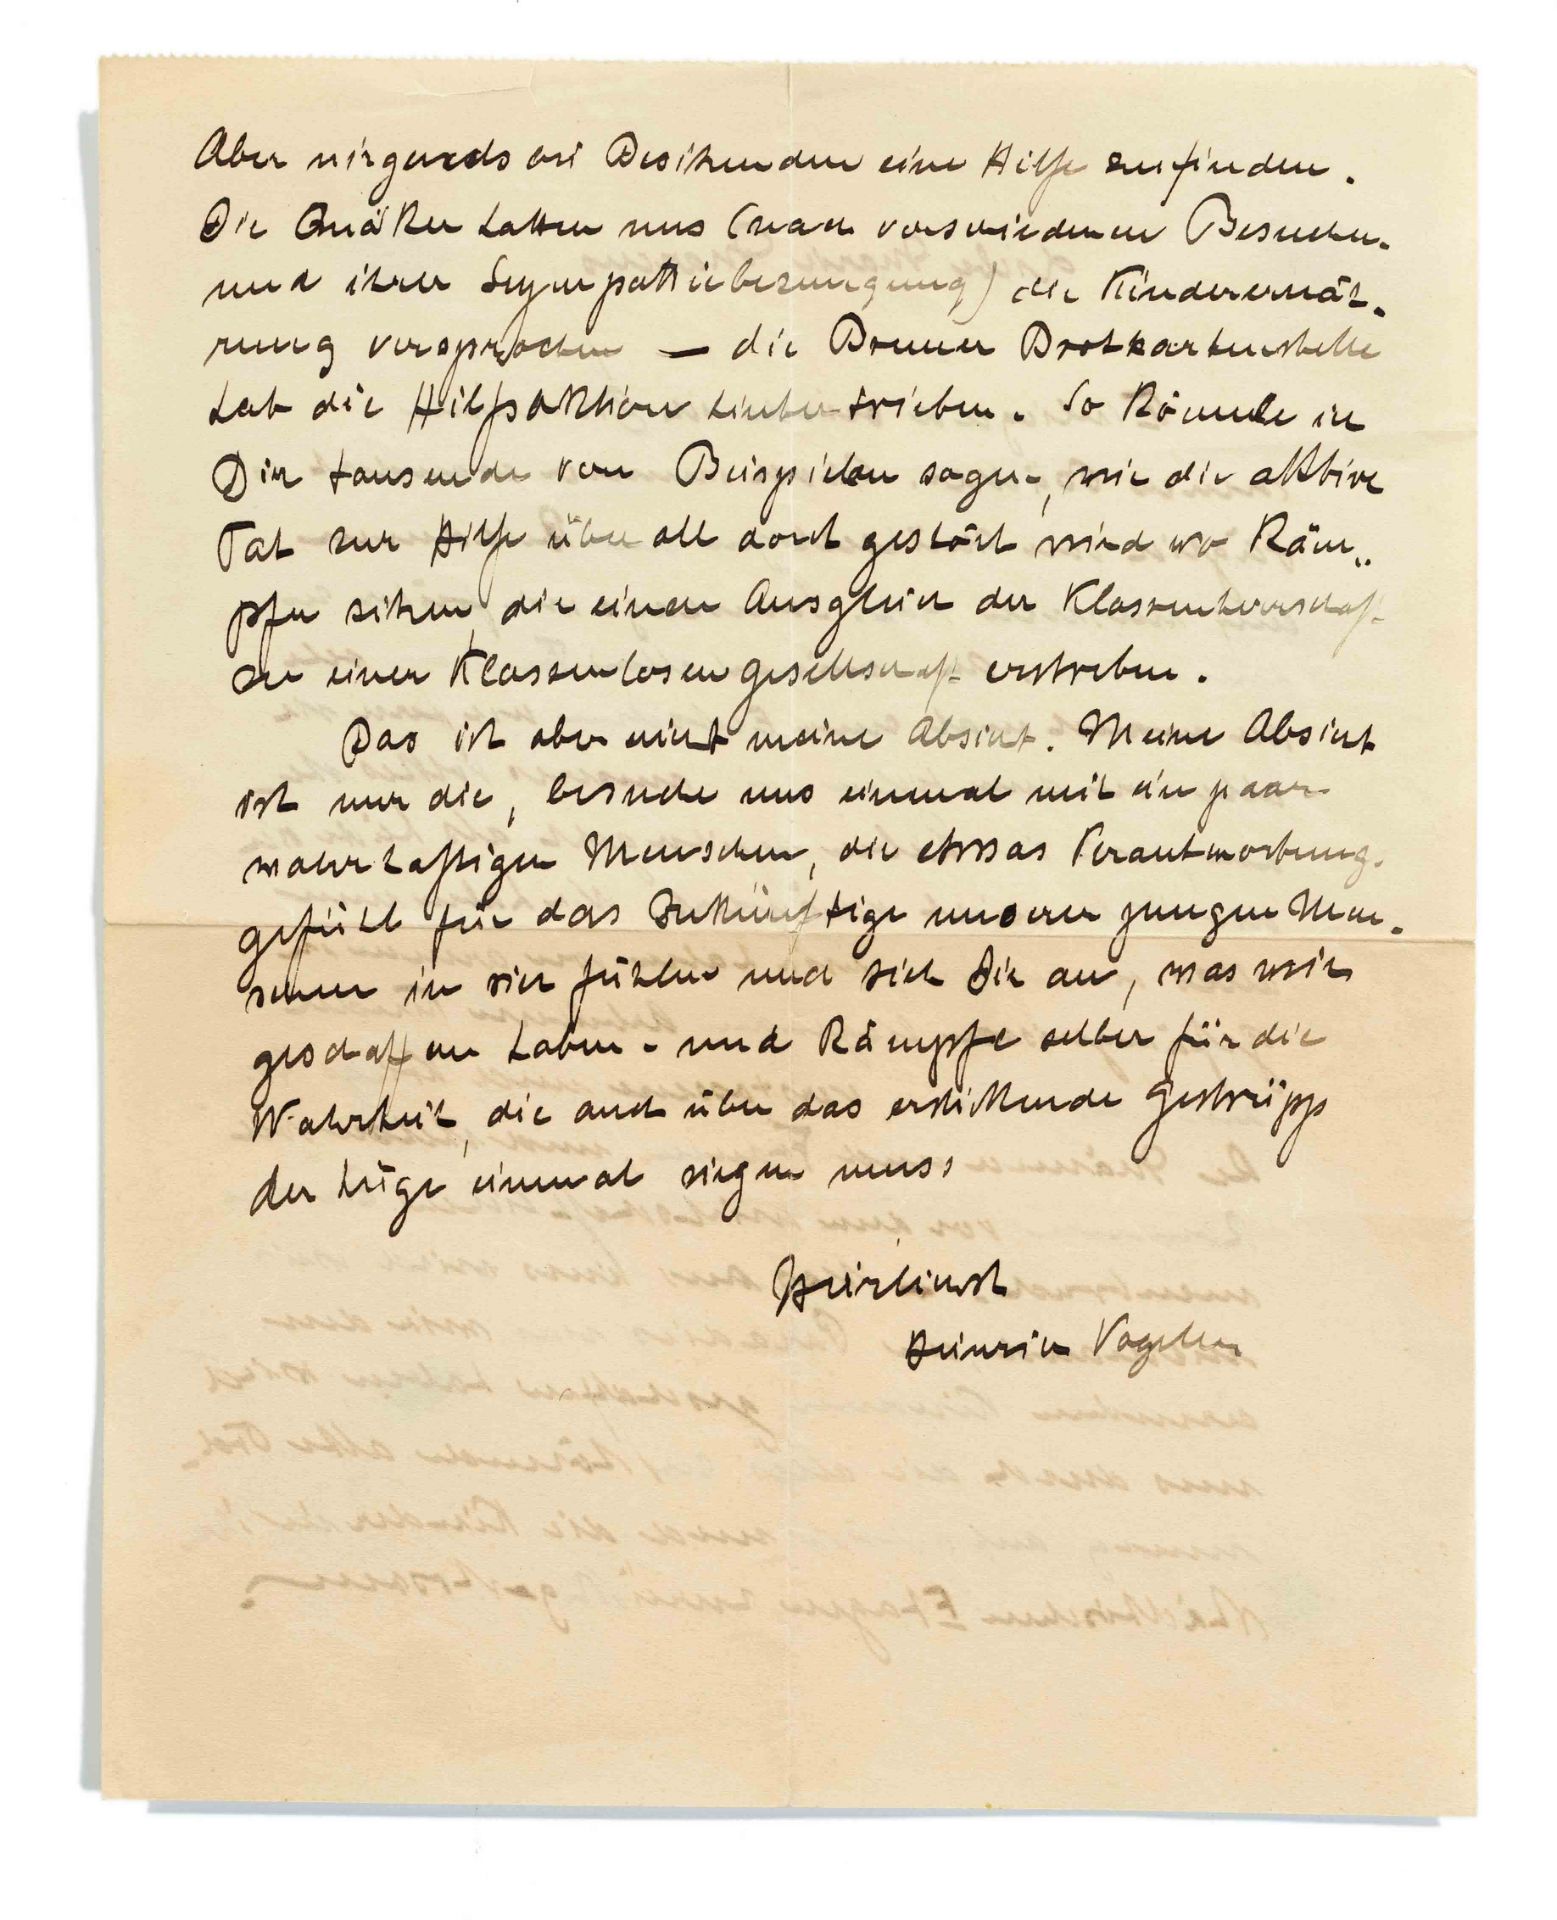 Aber nirgends bei Besitzenden eine Hilfe zu finden.
Die Quäker hatten uns (nach verschiedenen Besuchen
und ihrer Sympathiebezeugung) die Kinderernäh-
rung versprochen — die Bremer Brotkartenstelle
hat die Hilfsaktion hintertrieben. So könnte ich
Dir tausende von Beispielen sagen, wie die aktive
Tat zur Hilfe überall dort gestört wird wo Käm-
pfer sitzen, die einen Ausgleich der Klassenherrschaft
zu einer Klassenlosen gesellschaft erstreben.
Das ist aber nicht meine Absicht. Meine Absicht
ist nur die, besuche uns einmal mit ein paar
wahrhaftigen Menschen, die etwas Verantwortung-
gefühl für das Zukünftige unserer jungen Men-
schen in sich fühlen und sieh Dir an, was wir
geschaffen haben - und kämpfe selber für die
Wahrheit, die auch über das erstickende Gestrüpp
der Lüge einmal siegen muss
Herzlichst
Heinrich Vogeler